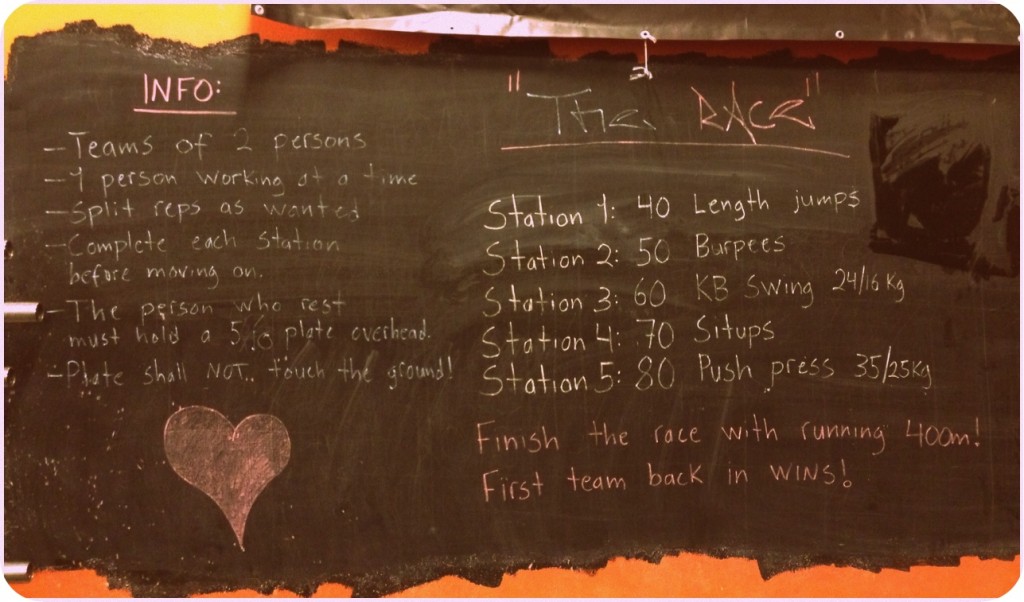 INFO:
- Teams of 2 persons
- 1 person working at a time
- Split reps as wanted
- Complete each station
before moving on.
- The person who rest
must hold a plate overhead.
- Plate shall NOT.. touch the ground!
"The RACE"
Station 1: 40 Length jumps
Station 2: 50 Burpees
Station 3: 60 KB Swing 24/16 Kg
Station 4: 70 Situps
Station 5: 80 Push press 35/25Kg
Finish the race with running 400m!
First team back in WINS!